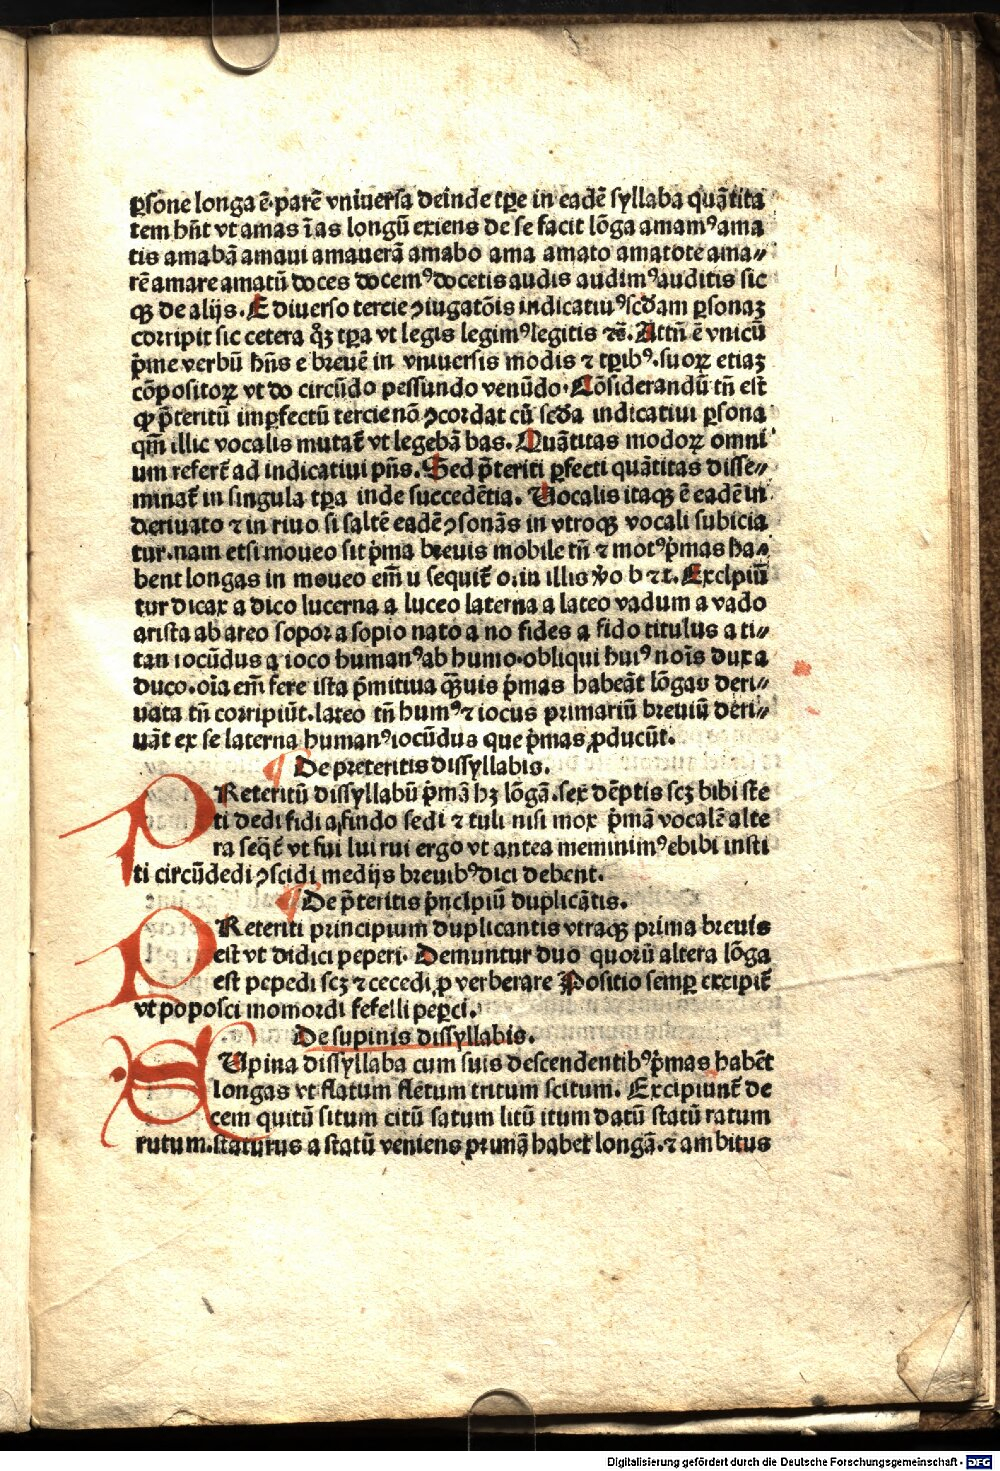 ꝑsone longa ē. parē vniuersa deinde tꝑe in eadē syllaba quātita
tem hn̄t vt amas īas longū exiens de se facit lōga amamꝰ ama
tis amabā amaui amauerā amabo ama amato amatote ama⸗
rē amare amatū doces docemꝰ docetis audis audimꝰ auditis sic
qꝫ de alijs. E diuerso tercie ↄiugatōis indicatiuꝰ scd̄am ꝑsonaꝫ
corripit sic cetera q̄ꝫ tꝑa vt legis legimꝰ legitis ⁊c̄. Attn̄ ē vnicū
p̄me verbū hn̄s e breuē in vniuersis modis ⁊ tꝑibꝰ. suoꝝ etiaꝫ
cōpositoꝝ vt do circūdo pessundo venūdo. Cōsiderandū tn̄ est
ꝙ p̄teritū imꝑfectū tercie nō ↄcordat cū scd̄a indicatiui ꝑsona
qm̄ illic vocalis mutat̄ vt legebā bas. Quātitas modoꝝ omni
um refert̄ ad indicatiui pn̄s. Sed p̄teriti ꝑfecti quātitas disse⸗
minat̄ in singula tꝑa inde succedētia. Vocalis itaqꝫ ē eadē in
deriuato ⁊ in riuo si saltē eadē ↄsonās in vtroqꝫ vocali subicia
tur. nam etsi moueo sit p̄ma breuis mobile tn̄ ⁊ motꝰ p̄mas ha⸗
bent longas in moueo em̄ u sequit̄ o. in illis v̊o b ⁊ t. Excipiū
tur dicax a dico lucerna a luceo laterna a lateo vadum a vado
arista ab areo sopor a sopio nato a no fides a fido titulus a ti⸗
tan iocūdus a ioco humanꝰ ab humo. obliqui huiꝰ nois dux a
duco. oīa em̄ fere ista p̄mitiua qꝫuis p̄mas habeāt lōgas deri⸗
uata tn̄ corripiūt. lateo tn̄ humꝰ ⁊ iocus primariū breuiū deri⸗
uāt ex se laterna humanꝰ iocūdus que p̄mas ꝓducūt.
¶ De preteritis dissyllabis.
PReteritū dissyllabū p̄mā hꝫ lōgā. sex dēptis scꝫ bibi ste
ti dedi fidi a findo scdi ⁊ tuli nisi mox p̄mā vocalē alte
ra seqt̄ vt fui lui rui ergo vt antea meminimꝰ ebibi insti
ti circūdedi ↄscidi medijs breuibꝰ dici debent.
¶ De p̄teritis p̄ncipiū duplicātis.
PReteriti principium duplicantis vtraqꝫ prima breuis
est vt didici peperi. Demuntur duo quorū altera lōga
est pepedi scꝫ ⁊ cecedi ꝓ verberare Positio semꝑ excipit̄
vt poposci momordi fefelli peꝑci.
De supinis dissyllabis.
SVpina dissyllaba cum suis descendentibꝰ p̄mas habēt
longas vt flatum flētum tritum scitum. Excipiunt̄ de
cem quitū situm citū satum litū itum datū statū ratum
rutum. staturus a statū veniens primā habet longā. ⁊ ambitus
Digitalisierung gefördert durch die Deutsche Forschungsgemeinschaft - DFG